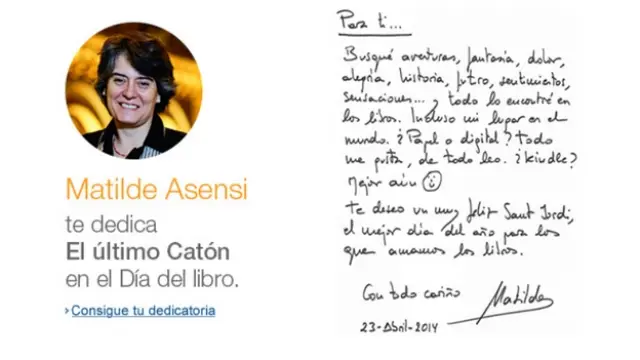 Matilde Asensi
te dedica
El último Catón
en el Día del libro.
› Consigue tu dedicatoria
Para ti...
Busqué aventuras, fantasía, dolor,
alegría, historia, futuro, sentimientos,
sensaciones... y todo lo encontré en
los libros. Incluso mi lugar en el
mundo. ¿Papel o digital? Todo
me gusta, de todo leo. ¿Kindle?
Mejor aún ☺
Te deseo un muy feliz Sant Jordi,
el mejor día del año para los
que amamos los libros.
Con todo cariño
Matilde
23-Abril-2014